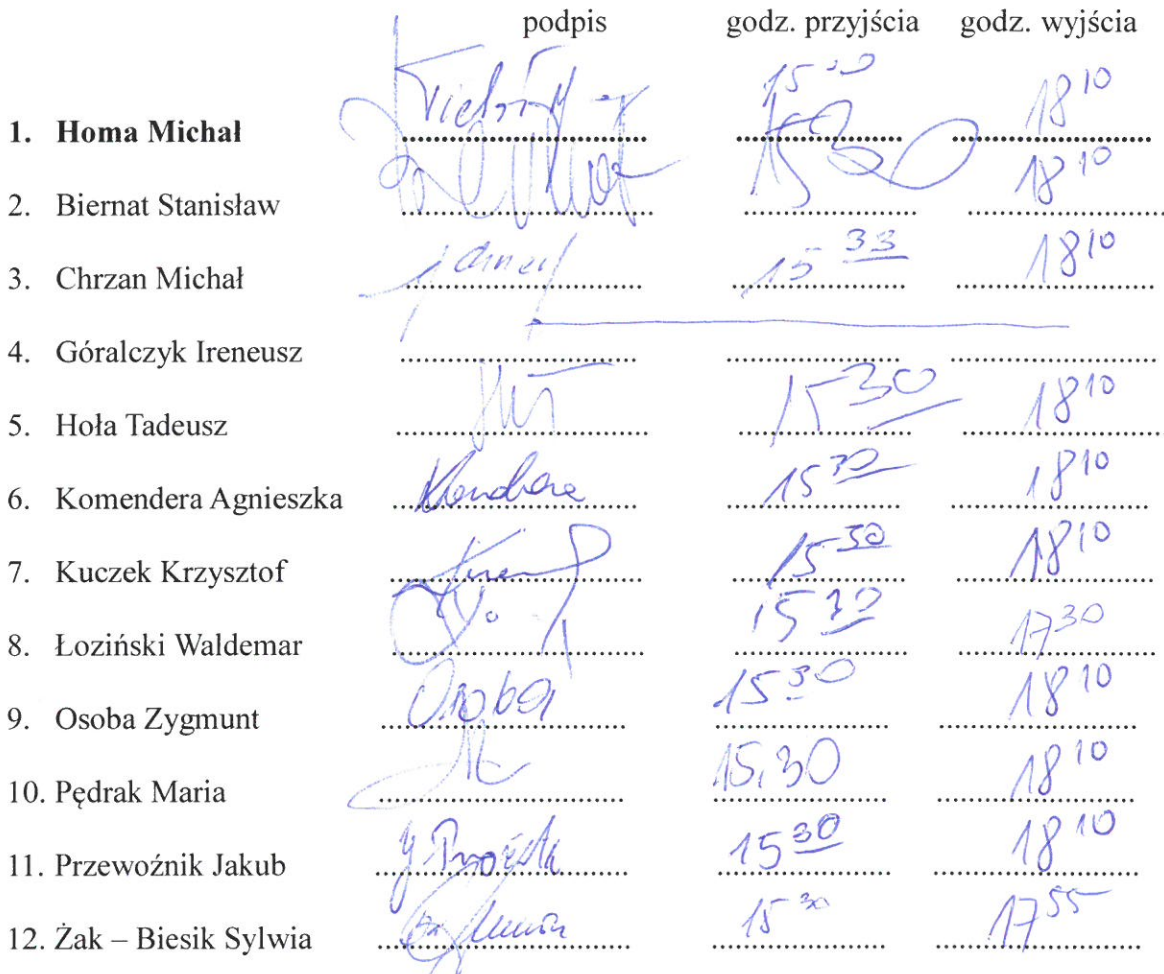 podpis godz. przyjścia godz. wyjścia
1. Homa Michał 18 10
2. Biernat Stanisław 1530 18 10
3. Chrzan Michał 15 33 18 10
4. Góralczyk Ireneusz
5. Hoła Tadeusz 15 30 18 10
6. Komendera Agnieszka 15 30 18 10
7. Kuczek Krzysztof 15 30 18 10
8. Łoziński Waldemar 15 30 17 30
9. Osoba Zygmunt Osoba 15 30 18 10
10. Pędrak Maria 15.30 18 10
11. Przewoźnik Jakub 15 30 18 10
12. Żak – Biesik Sylwia 15 30 17 55